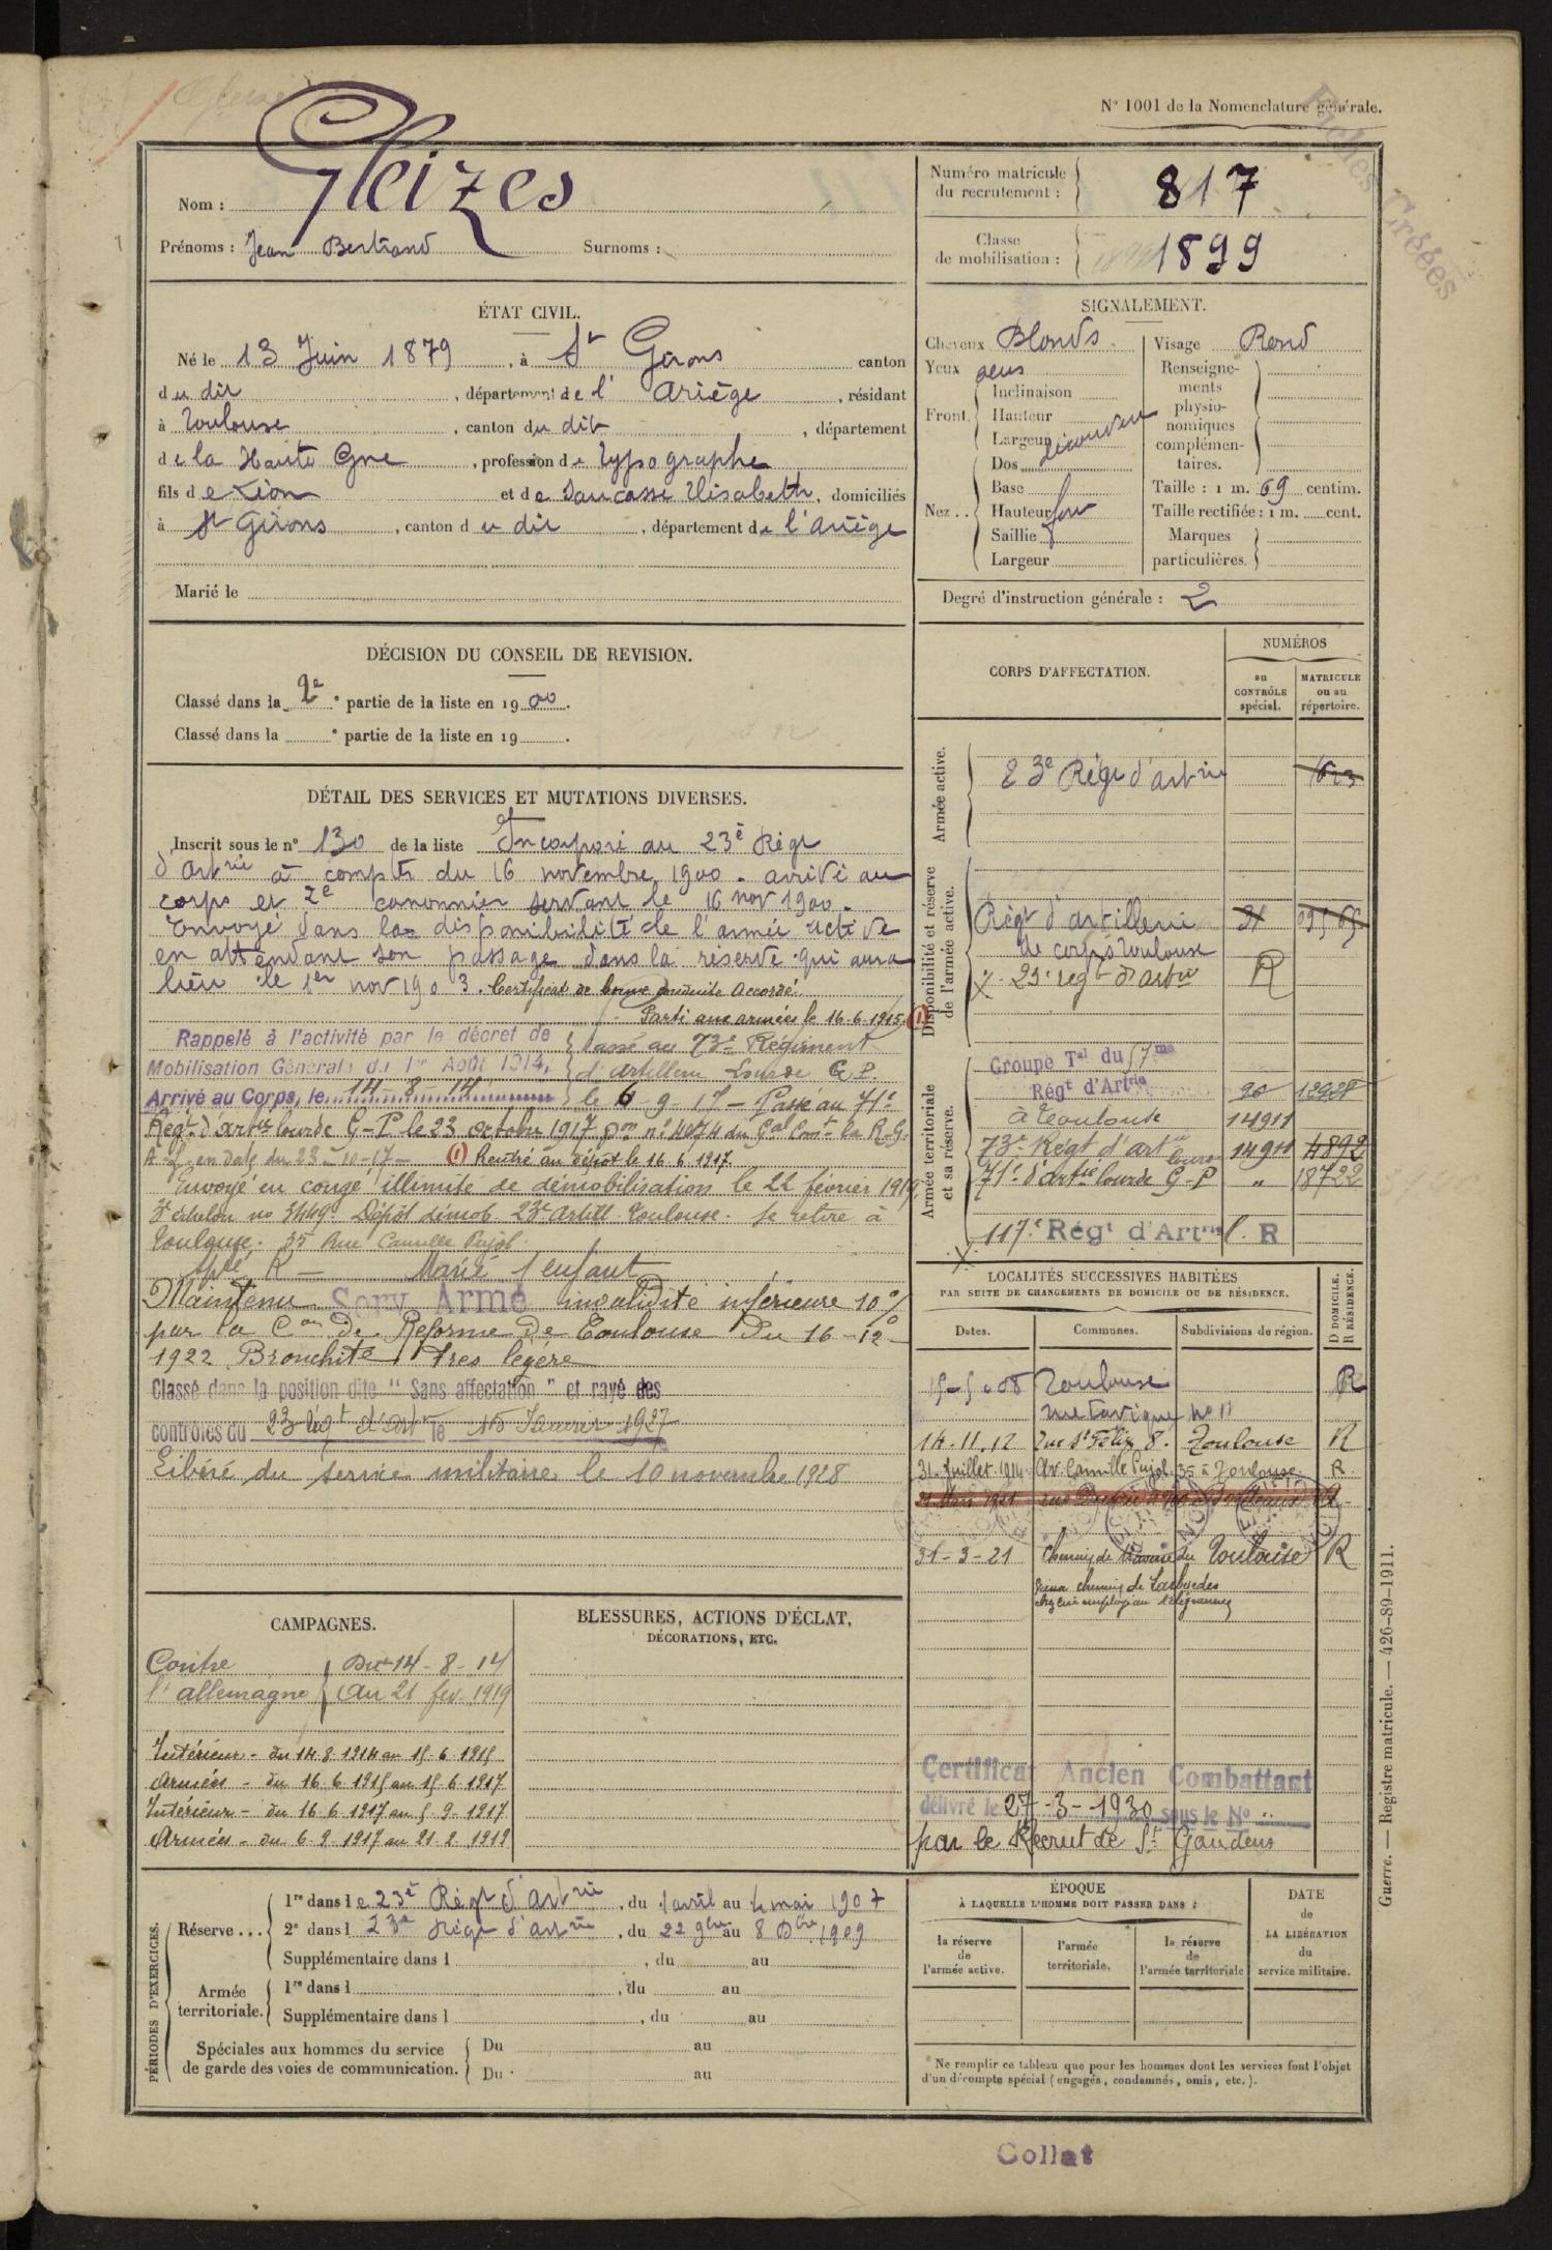 N° 1001 de la Nomenclature générale.
Fiches Créées
Nom : Gleizes
Prénoms : Jean Bertrand Surnoms :
Numéro matricule du recrutement : 817
Classe de mobilisation : 1899
ÉTAT CIVIL.
Né le 13 Juin 1879, à St Girons canton
du dit, département de l' Ariège, résidant
à Toulouse, canton du dit, département
de la Haute Gne, profession de Typographe
fils de Léon et de Elisabeth, domiciliés
à St Girons, canton du dit, département de l'Ariège
Marié le
SIGNALEMENT.
Cheveux Blonds. Visage Rond
Yeux
Front. Inclinaison
Hauteur
Largeur découvert
Nez.. Dos
Base
Hauteur
Saillie
Largeur
Renseignements physionomiques complémentaires.
Taille : 1 m. 69 centim.
Taille rectifiée : 1 m. cent.
Marques particulières.
Degré d'instruction générale : 2
DÉCISION DU CONSEIL DE REVISION.
Classé dans la 2e partie de la liste en 1900.
Classé dans la e partie de la liste en 19 .
DÉTAIL DES SERVICES ET MUTATIONS DIVERSES.
Inscrit sous le n° 130 de la liste Incorporé au 23e Régt
d'Artrie à compter du 16 novembre 1900. arrivé au
corps et 2e canonnier servant le 16 nov 1900.
Envoyé dans la disponibilité de l'armée active
en attendant son passage dans la réserve qui aura
lieu le 1er nov 1903. Certificat de bonne conduite Accordé.
Parti aux armées le 16-6-1915 (1)
Rappelé à l'activité par le décret de
Mobilisation Générale du 1er Août 1914,
Arrivé au Corps, le 14-8-14
Passé au 73e Régiment
d'Artillerie Lourde G.P.
le 6-9-17 - Passé au 71e
Régt d'Artie lourde G-P le 23 octobre 1917 pon n° 4074 du Gal Comt la R.G.
A.L. en date du 23-10-17 - (1) Rentré au dépôt le 16 6 1917.
Envoyé en congé illimité de démobilisation le 22 février 1919
3e échelon no 3449. Dépôt démob 23e Artill Toulouse. Se retire à
Toulouse. 35 Rue Camille Pujol.
R - Marié 1 enfant
Maintenu Serv Armé invalidité inférieure 10%
par la Con De Reforme De Toulouse Du 16-12-
1922 Bronchite très légère
Classé dans la position dite "Sans affectation" et rayé des
contrôles du 23 régt d'art le 15 Janvier 1927
Libéré du service militaire le 10 novembre 1928
CORPS D'AFFECTATION.
NUMÉROS
au CONTRÔLE spécial.
MATRICULE ou au répertoire.
Armée active.
23e Régt d'artrie
Disponibilité et réserve de l'armée active.
Régt d'artillerie
de corps Toulouse
23e régt d'artie R
Armée territoriale et sa réserve.
Groupe Tal du 17me
Régt d'Artrie
à Toulouse 14911
73e Régt d'artie lourde 14911 4892
71e d'artie lourde G-P " 18722
117e Régt d'Artrie l. R
LOCALITÉS SUCCESSIVES HABITÉES
PAR SUITE DE CHANGEMENTS DE DOMICILE OU DE RÉSIDENCE.
Dates. Communes. Subdivisions de région. D DOMICILE. R RÉSIDENCE.
Toulouse R
14.11.12 Rue St Félix 8. Toulouse R
31. Juillet 1914 Av. Camille Pujol 35 à Toulouse R.
31-3-21 Chemin de Toulouse R
CAMPAGNES.
Contre l'allemagne Du 14-8-14
Au 21 fev. 1919
Intérieur - du 14.8.1914 au 15.6.1915
Armées - du 16.6.1915 au 15.6.1917
Intérieur - du 16.6.1917 au 5.9.1917
Armées - du 6.9.1917 au 21.2.1919
BLESSURES, ACTIONS D'ÉCLAT,
DÉCORATIONS, ETC.
Certificat Ancien Combattant
délivré le 27-3-1930 sous le N° ..
par le Recrut de St Gaudens
PÉRIODES D'EXERCICES.
Réserve... 1re dans le 23e Régt d'Artrie, du 1 avril au 4 mai 1907
2e dans l 23e Régt d'artrie, du 22 9bre au 8 Dbre 1909
Supplémentaire dans l , du au
Armée territoriale. 1re dans l , du au
Supplémentaire dans l , du au
Spéciales aux hommes du service de garde des voies de communication. Du au
Du au
ÉPOQUE
À LAQUELLE L'HOMME DOIT PASSER DANS :
la réserve de l'armée active.
l'armée territoriale.
la réserve de l'armée territoriale
DATE de LA LIBÉRATION du service militaire.
* Ne remplir ce tableau que pour les hommes dont les services font l'objet
d'un décompte spécial (engagés, condamnés, omis, etc.).
Guerre. — Registre matricule. — 426-89-1911.
Collat